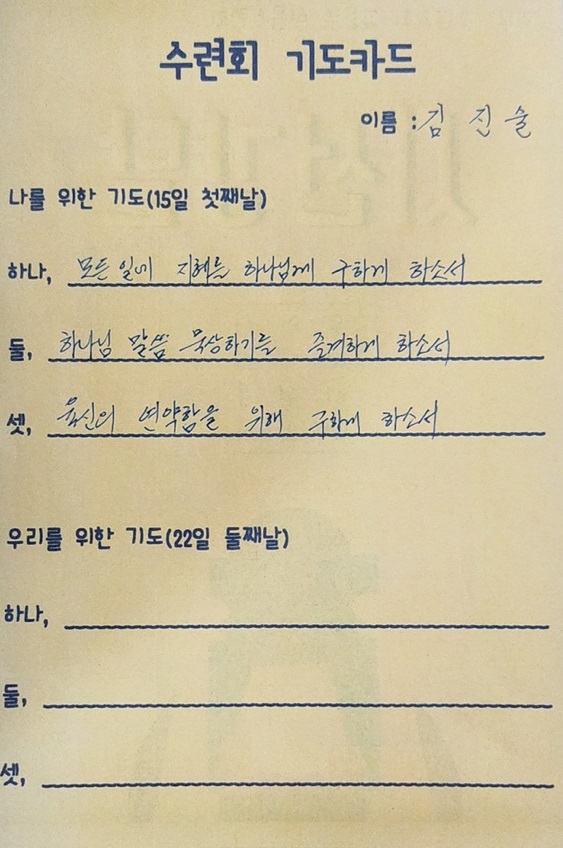 수련회 기도카드
이름 : 김 진 술
나를 위한 기도(15일 첫째날)
하나, 모든 일에 지혜를 하나님께 구하게 하소서
둘, 하나님 말씀 묵상하기를 즐겨하게 하소서
셋, 육신의 연약함을 위해 구하게 하소서
우리를 위한 기도(22일 둘째날)
하나,
둘,
셋,